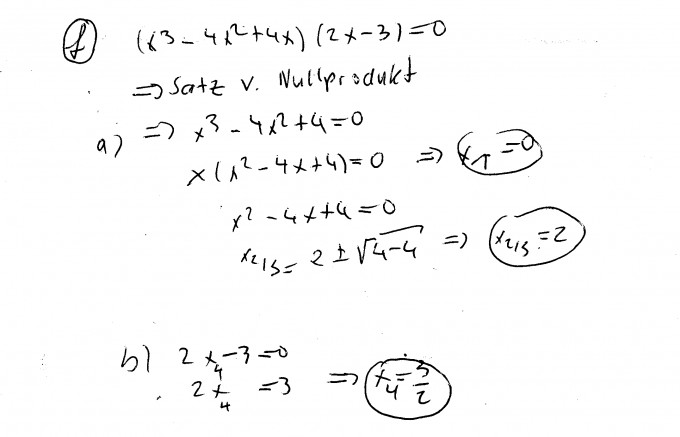 f) (x³ - 4x² + 4x) (2x - 3) = 0
⇒ Satz v. Nullprodukt
a) ⇒ x³ - 4x² + 4 = 0
x(x² - 4x + 4) = 0 ⇒ x₁ = 0
x² - 4x + 4 = 0
x₂/₃ = 2 ± √4-4 ⇒ x₂/₃ = 2
b) 2x₄ - 3 = 0
2x₄ = 3 ⇒ x₄ = 3/2